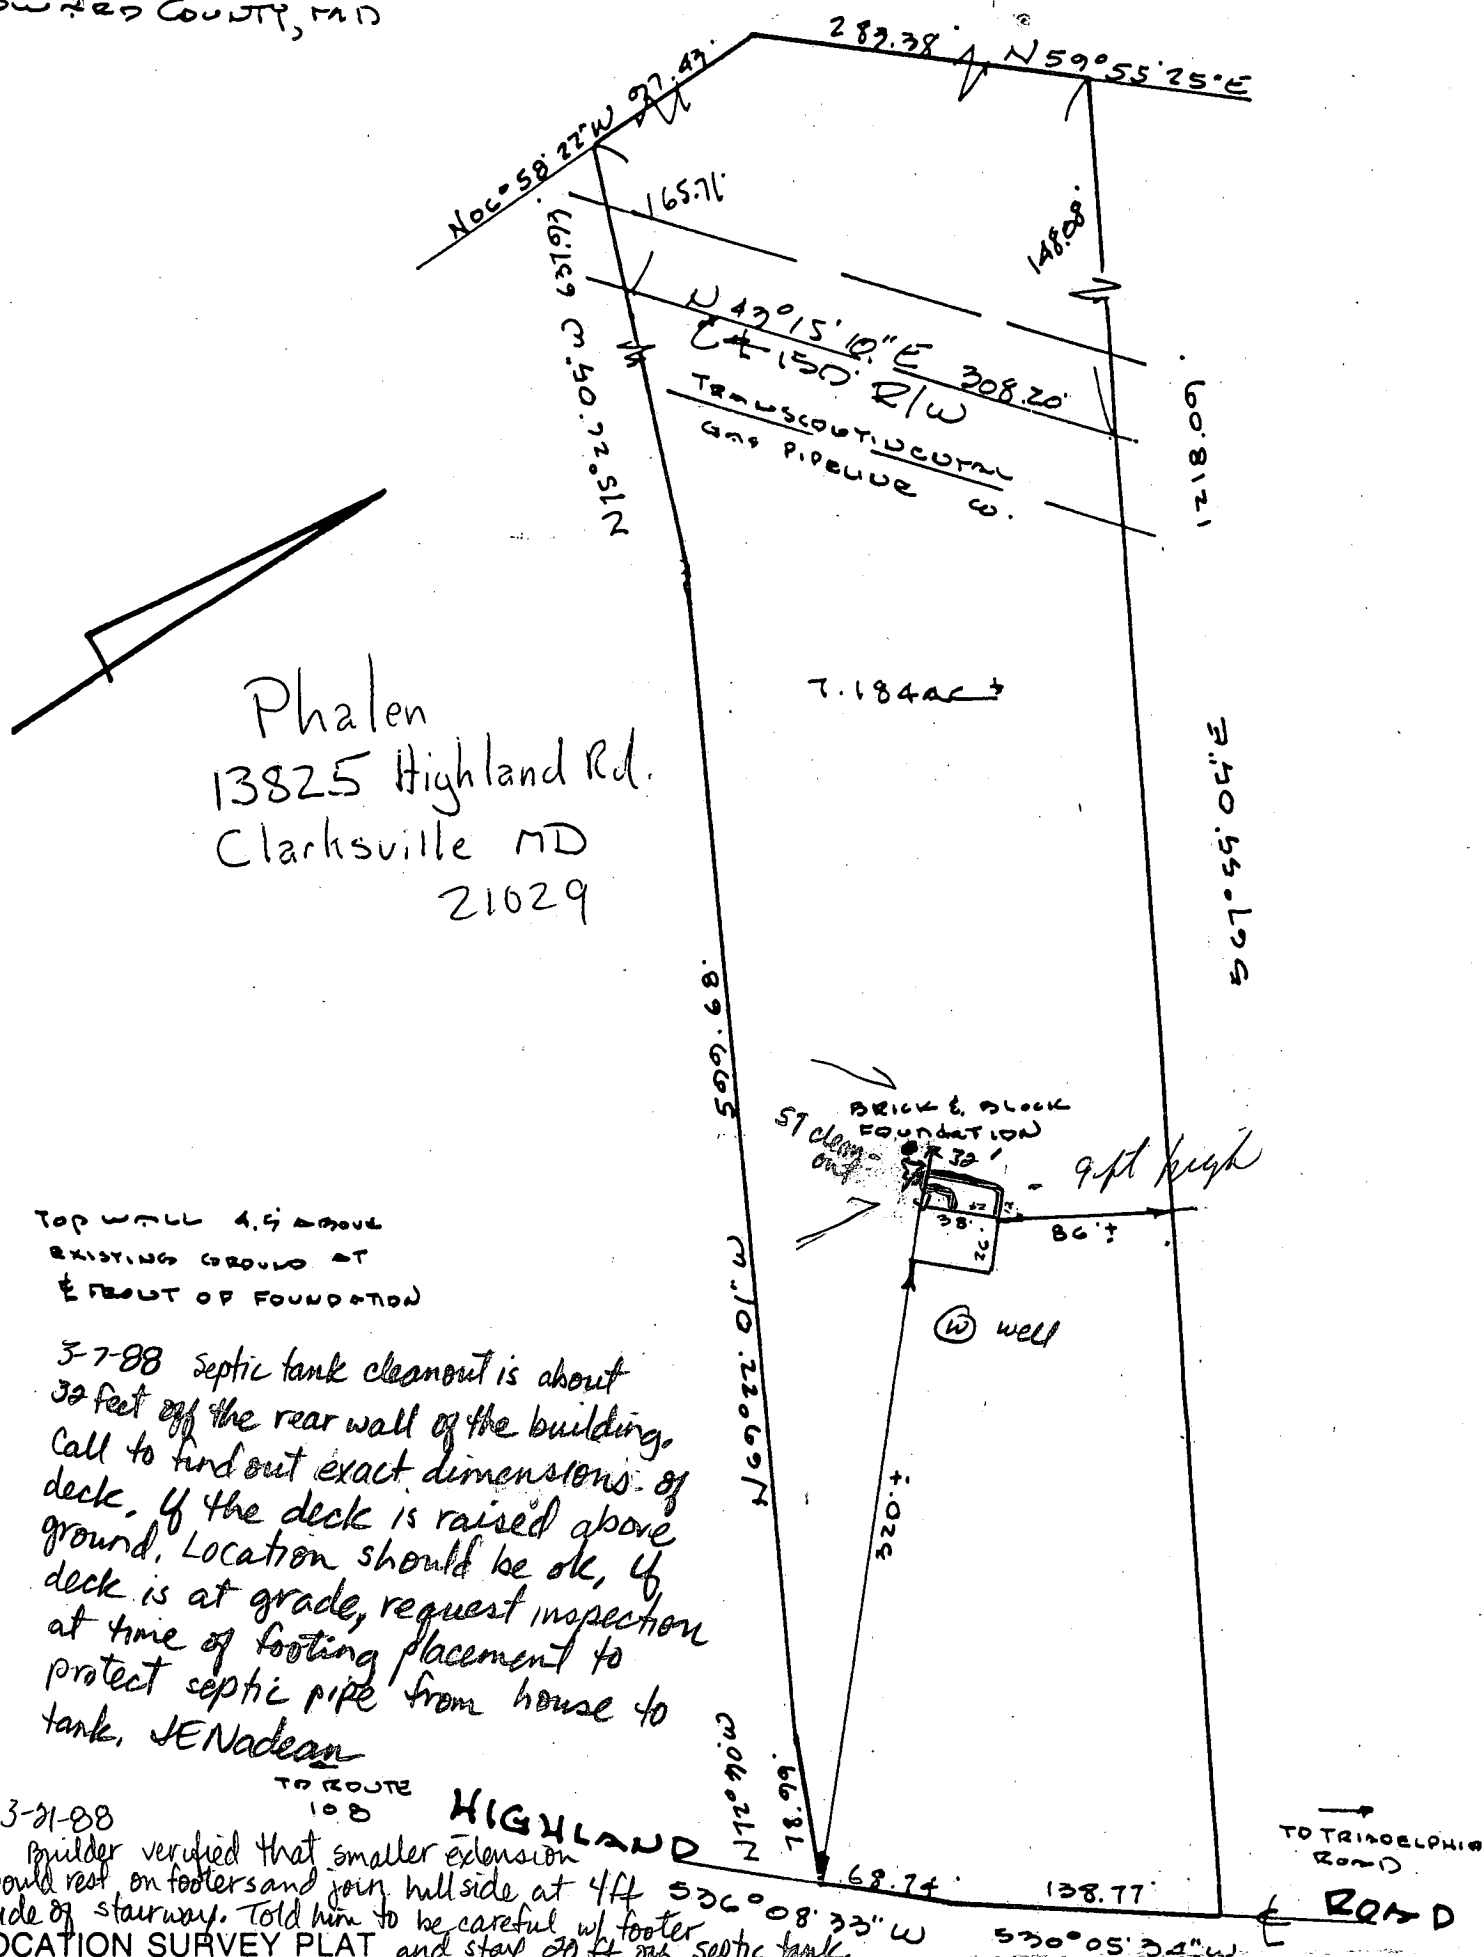 COUNTY, MD
283.38'
N 59° 55' 25" E
N 06° 58' 22" W 97.43'
165.71'
148.08'
N 43° 15' 10" E 308.20'
150' R/W
TRANSCONTINENTAL
GAS PIPELINE CO.
N 15° 27' 05" W 631.94'
1218.09'
S 67° 55' 05" E
7.184 AC ±
Phalen
13825 Highland Rd.
Clarksville MD
21029
599.68'
N 69° 22' 01" W
BRICK & BLOCK
FOUNDATION
ST clean-
out
32'
9 ft high
38'
26'
86' ±
W well
320' ±
TOP WALL 4.5' ABOVE
EXISTING GROUND AT
FRONT OF FOUNDATION
3-7-88 Septic tank cleanout is about
32 feet off the rear wall of the building.
Call to find out exact dimensions of
deck. If the deck is raised above
ground, Location should be ok, if
deck is at grade, request inspection
at time of footing placement to
protect septic pipe from house to
tank. JENadeau
TO ROUTE
108
HIGHLAND
78.99'
68.74'
138.77'
S 36° 08' 33" W
S 30° 05' 34" W
TO TRIADELPHIA
ROAD
℄ ROAD
3-21-88
Builder verified that smaller extension
would rest on footers and join hillside at 4ft
side of stairway. Told him to be careful w/ footer
LOCATION SURVEY PLAT and stay 20 ft off septic tank.